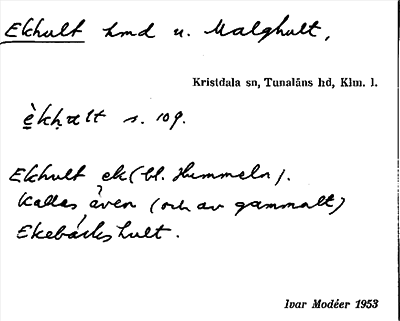 Ekhult hmd u. Malghult,
Kristdala sn, Tunaläns hd, Klm. l.
èkhalt s. 109.
Ekhult ek (bl. Hummeln).
Kallas även (och av gammalt)
Ekebäckshult.
Ivar Modéer 1953